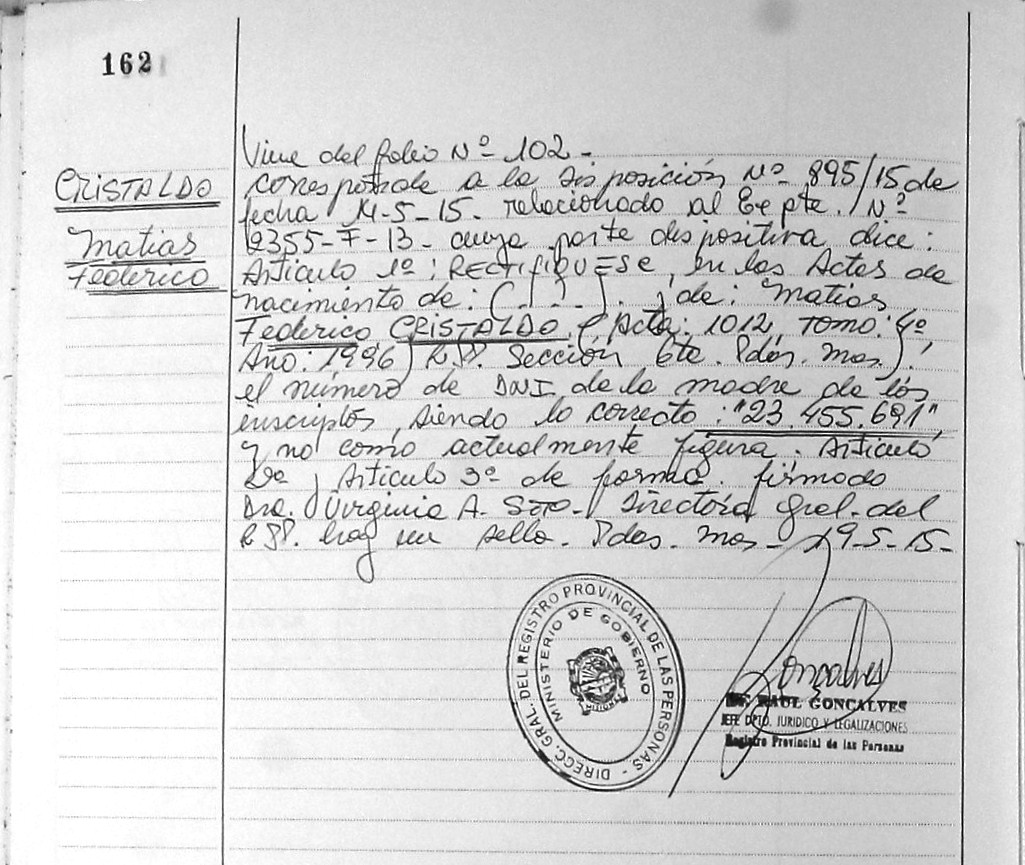 162
CRISTALDO
Matias
Federico
Viene del folio Nº 102-
corresponde a la disposición Nº 895/15 de
fecha 14-5-15- relacionado al Expte. Nº
12355-F-13- cuya parte dispositiva dice:
Articulo 1º: RECTIFIQUESE, en las Actas de
nacimiento de: (- - - -). y de: Matias
Federico CRISTALDO (Acta: 1012, Tomo: 4º,
Año: 1996) R.P. Sección 6ta. Pdas. Mnes).
el número de DNI de la madre de los
inscriptos, siendo lo correcto: "23.455.691"
y no como actualmente figura. Articulo
2º y Articulo 3º de forma. firmado
Dra. Virginia A. Soto- Directora Gral. del
R.P. hay un sello. Pdas. Mnes- 19-5-15-
DIRECC. GRAL. DEL REGISTRO PROVINCIAL DE LAS PERSONAS -
MINISTERIO DE GOBIERNO
MISIONES
Goncalves
RAUL GONCALVES
JEFE DPTO. JURIDICO Y LEGALIZACIONES
Registro Provincial de las Personas